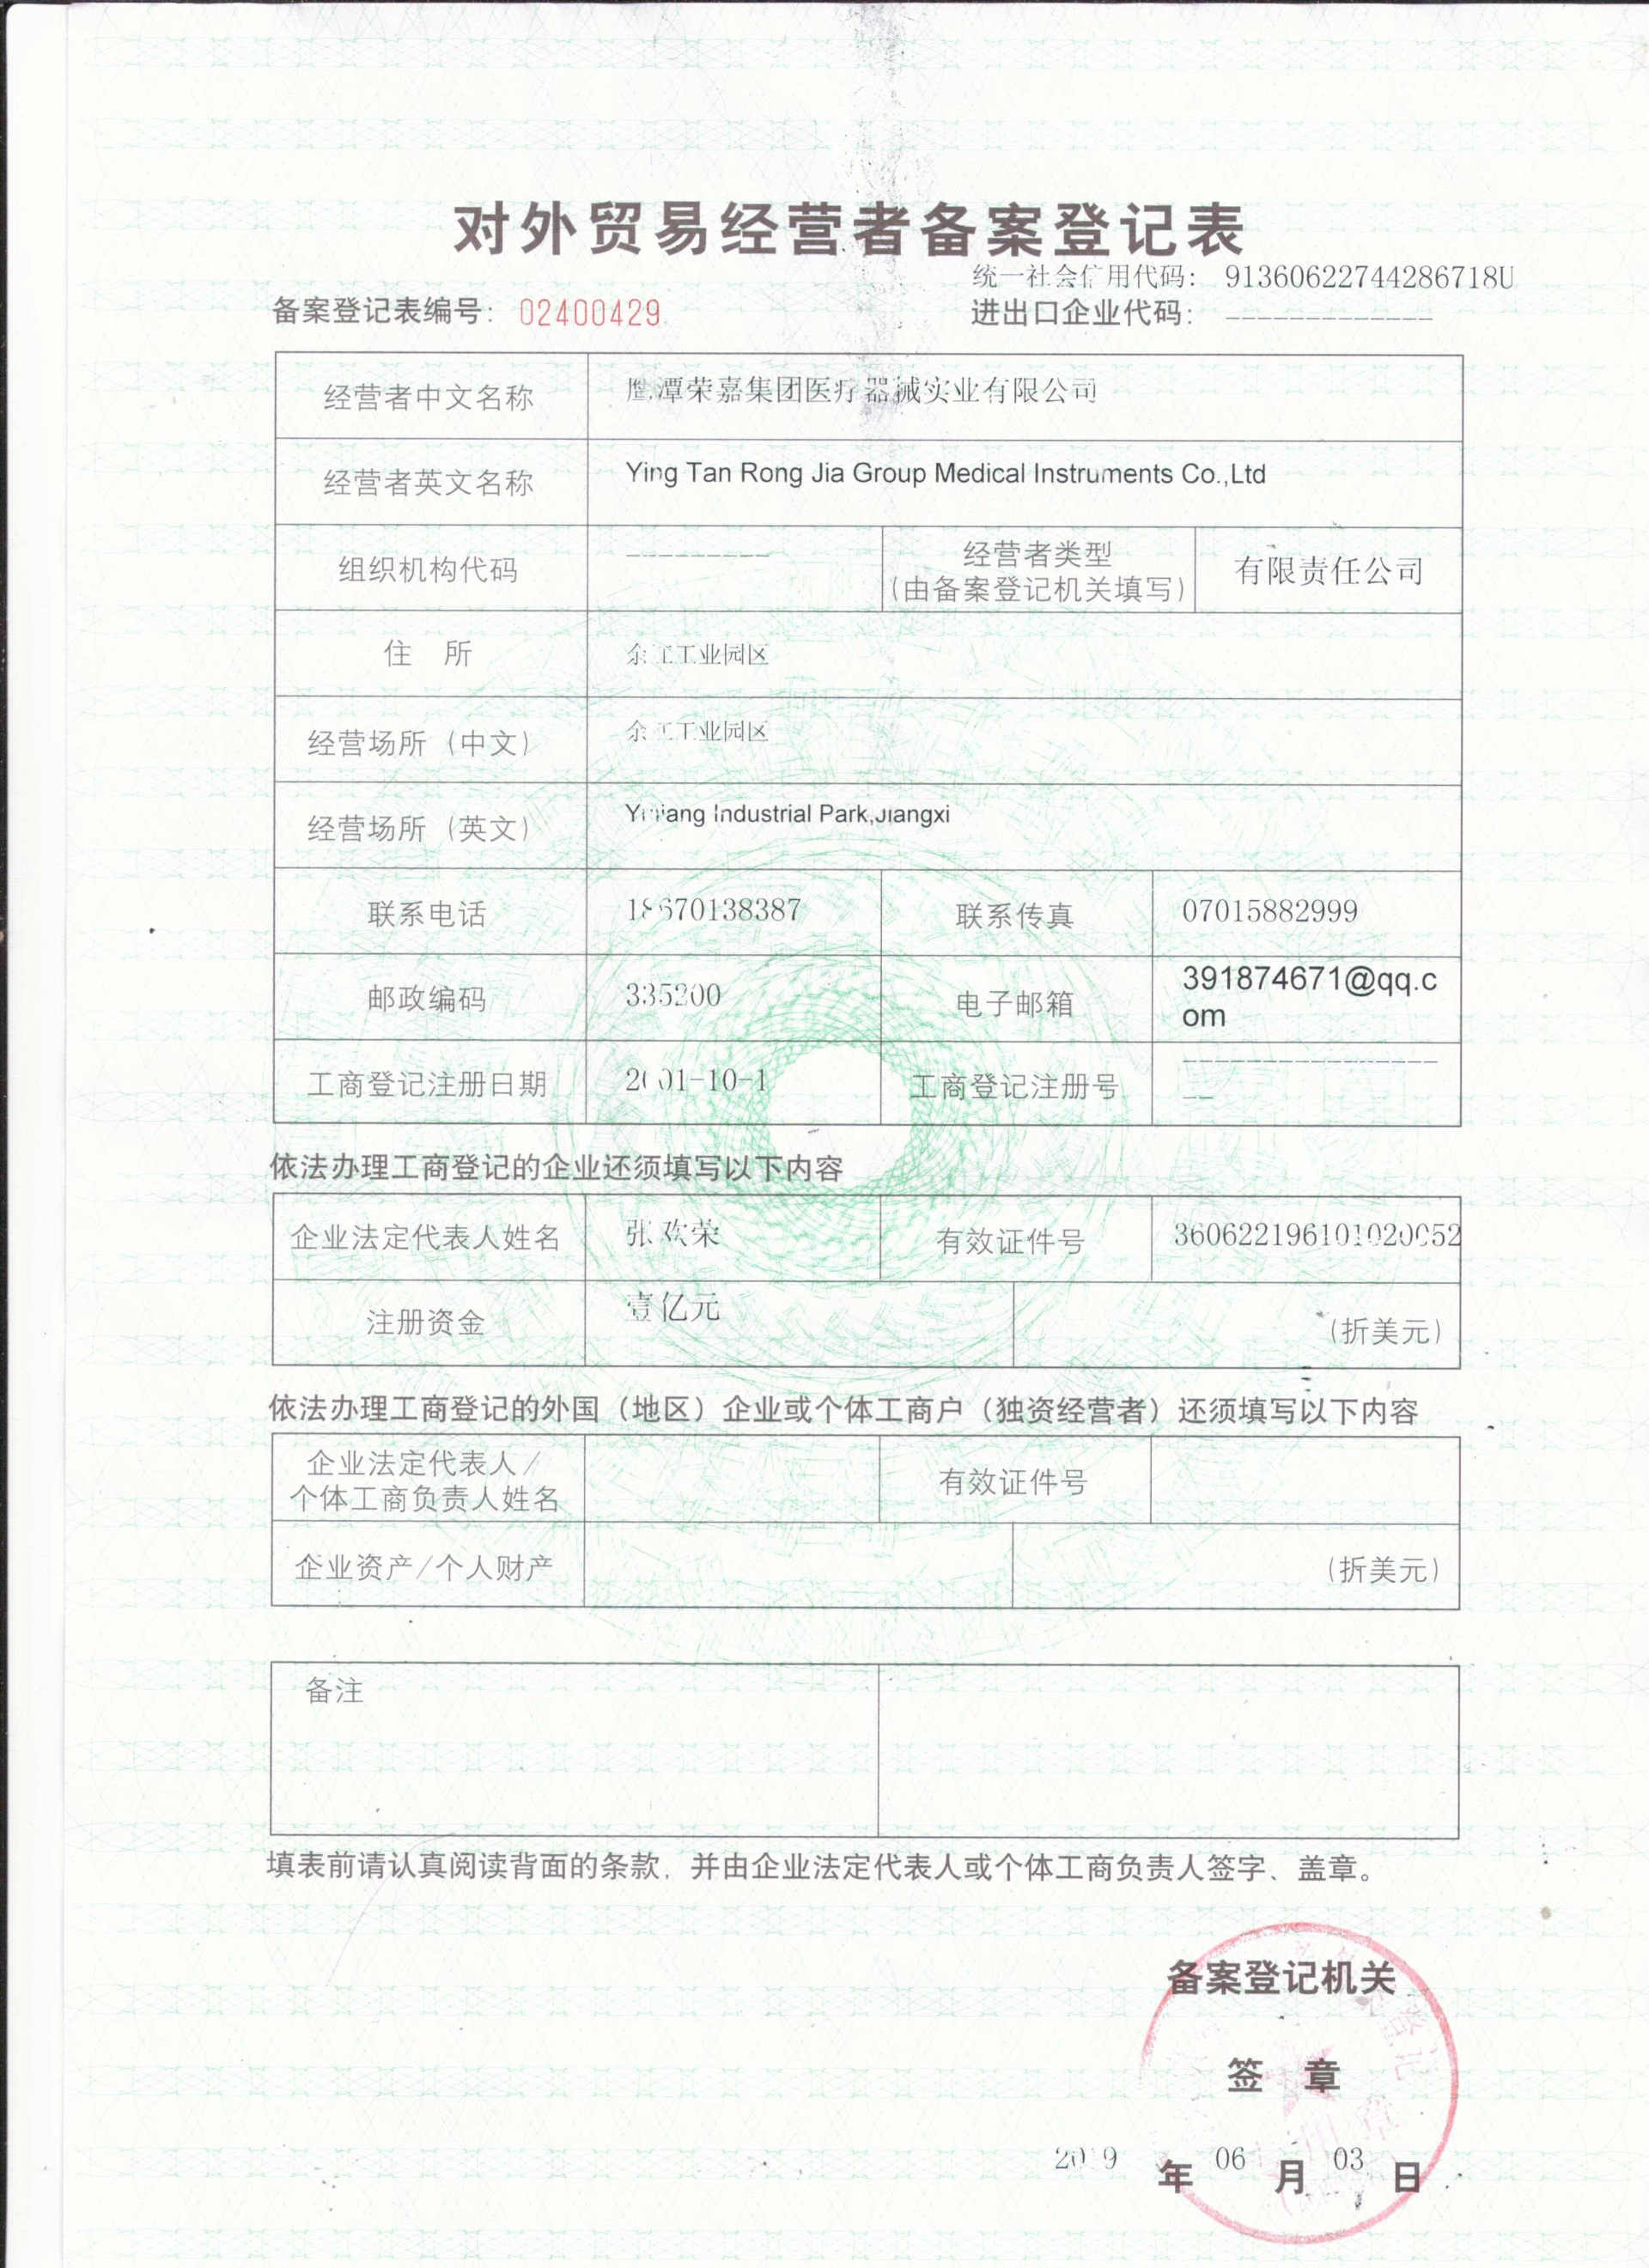 对外贸易经营者备案登记表
统一社会信用代码： 91360622744286718U
备案登记表编号： 02400429
进出口企业代码： -------------
经营者中文名称 鹰潭荣嘉集团医疗器械实业有限公司
经营者英文名称 Ying Tan Rong Jia Group Medical Instruments Co.,Ltd
组织机构代码 --------- 经营者类型 有限责任公司
(由备案登记机关填写)
住 所 余江工业园区
经营场所（中文） 余江工业园区
经营场所（英文） Industrial Park,Jiangxi
联系电话 联系传真 07015882999
邮政编码 335200 电子邮箱 391874671@qq.c
om
工商登记注册日期 2001-10-1 工商登记注册号 ----------------
--
依法办理工商登记的企业还须填写以下内容
企业法定代表人姓名 张欢荣 有效证件号 360622196101020052
注册资金 壹亿元 (折美元)
依法办理工商登记的外国（地区）企业或个体工商户（独资经营者）还须填写以下内容
企业法定代表人/
个体工商负责人姓名 有效证件号
企业资产/个人财产 (折美元)
备注
填表前请认真阅读背面的条款，并由企业法定代表人或个体工商负责人签字、盖章。
备案登记机关
签 章
2019 年 06 月 03 日